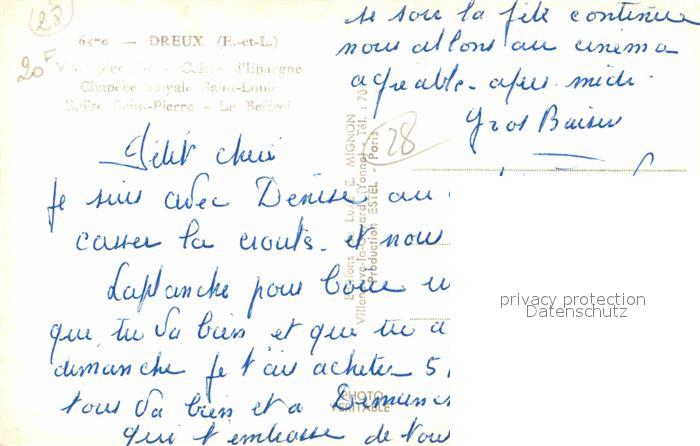 28
6470 — DREUX (E.-et-L.)
20F
Caisse d'Epargne
Chapelle Royale Saint-Louis
Eglise Saint-Pierre - Le Beffroi
Petit cheri
Je suis avec Denise au
casser la croute. et nous
Laplanche pour boire u
que tu va bien et que tu a
dimanche je t'ais acheter 5
tous va bien et a Dimanc
qui t'embrasse de tou
Editions L. E. MIGNON
Villeneuve-la-Guyard (Yonne) - Tél. : 70
Production ESTEL - Paris
PHOTO
VERITABLE
28
se soir la fête continue
nous allons au cinéma
agréable. apres. midi.
Gros Baiser
privacy protection
Datenschutz